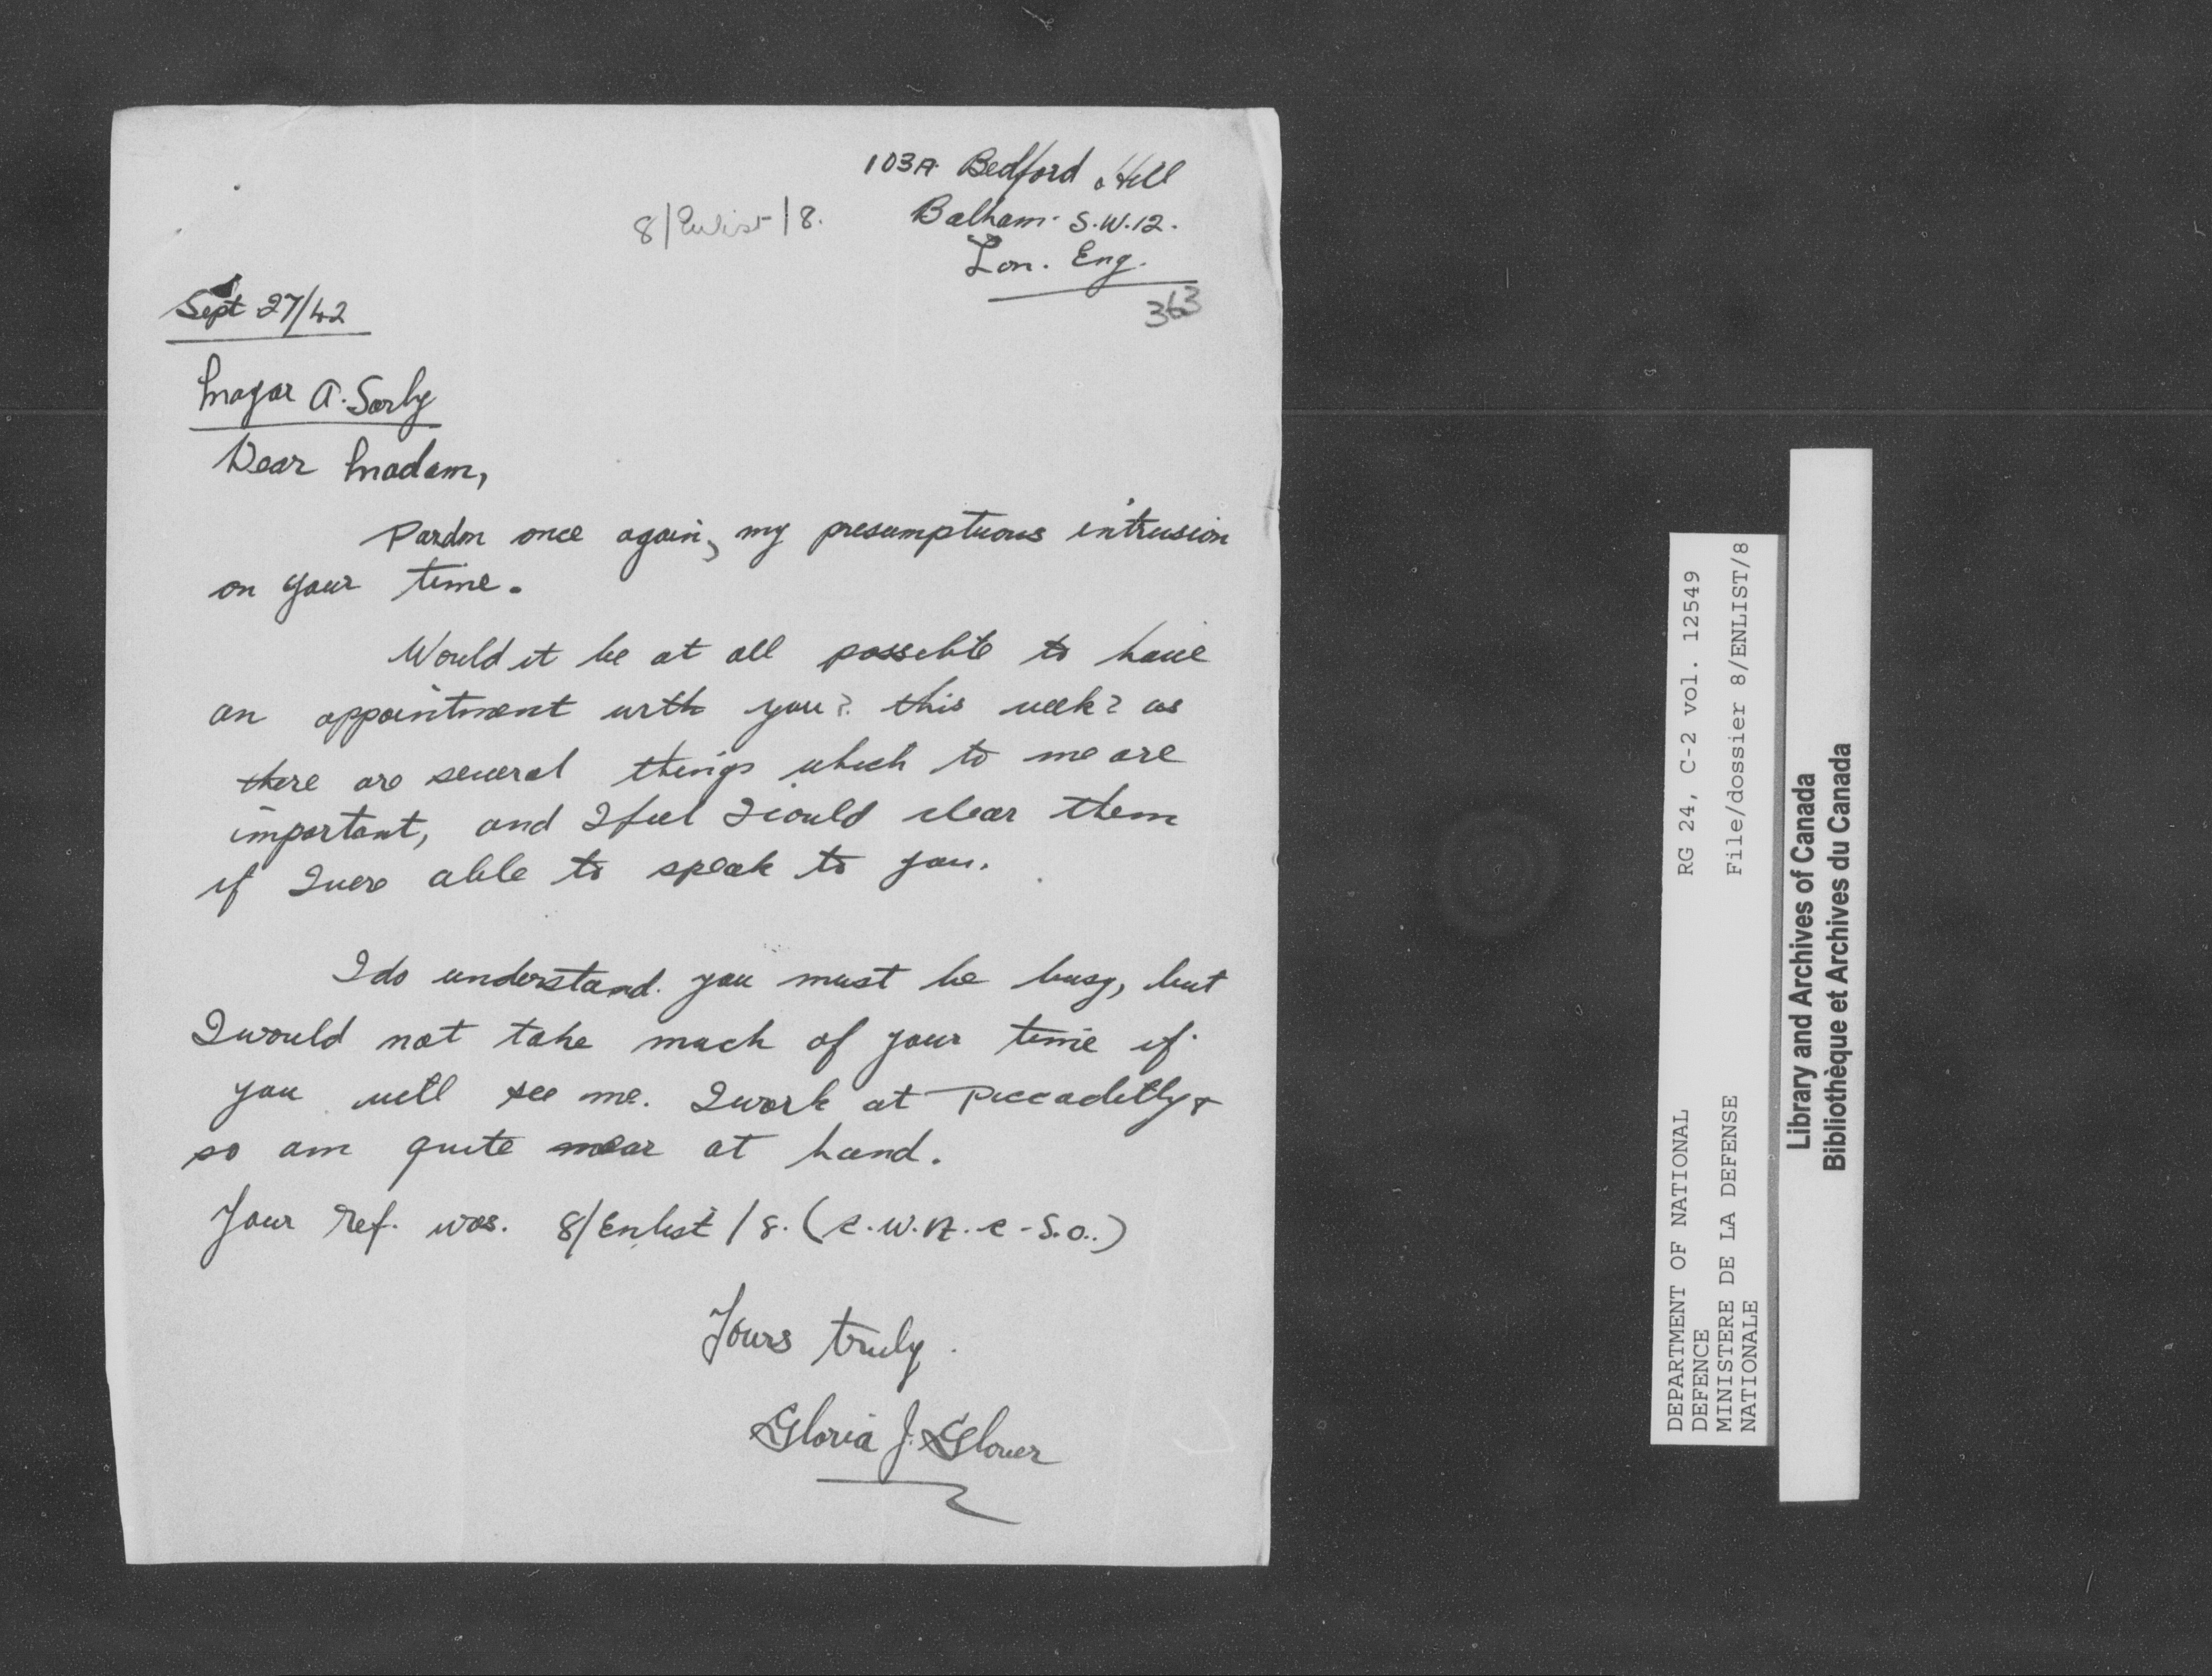 103A Bedford Hill
8/Enlist/8.
Balham. S.W.12.
Lon. Eng.
363
Sept 27/42
Major A. Sorby
Dear Madam,
Pardon once again, my presumptuous intrusion
on your time.
Would it be at all possible to have
an appointment with you? this week? as
there are several things which to me are
important, and I feel I could clear them
if I were able to speak to you.
I do understand. you must be busy, but
I would not take much of your time if
you will see me. I work at Piccadilly &
so am quite near at hand.
Your ref. was. 8/Enlist/8. (C.W.A.C-S.O..)
Yours truly.
Gloria J. Glover
DEPARTMENT OF NATIONAL
DEFENCE
MINISTERE DE LA DEFENSE
NATIONALE
RG 24, C-2 vol. 12549
File/dossier 8/ENLIST/8
Library and Archives of Canada
Bibliothèque et Archives du Canada